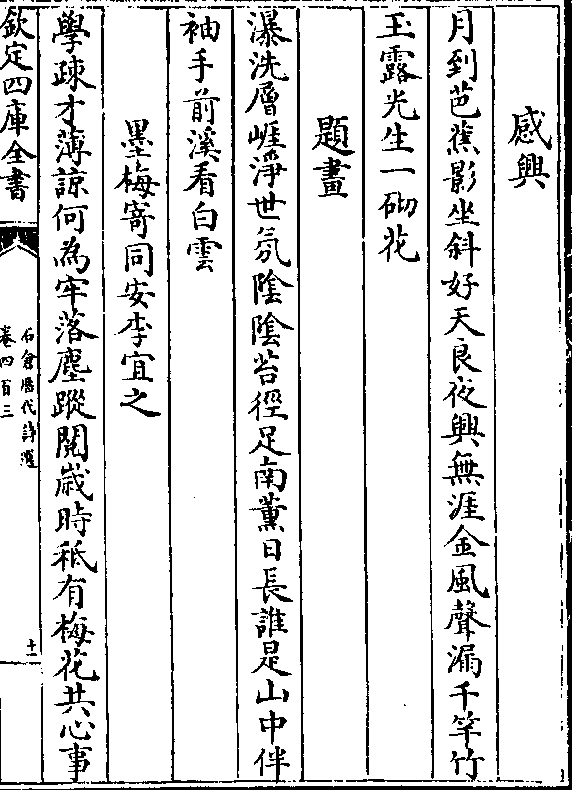 感興
月到芭蕉影坐斜好天良夜興無涯金風聲漏千竿竹
玉露光生一砌花
題畫
瀑洗層崕淨世氛陰陰苔徑足南薰日長誰是山中伴
袖手前溪看白雲
墨梅寄同安李宜之
學疎才薄諒何為牢落塵蹤閱歳時秪有梅花共心事
欽定四庫全書
石倉歷代詩選
卷四百三
十一